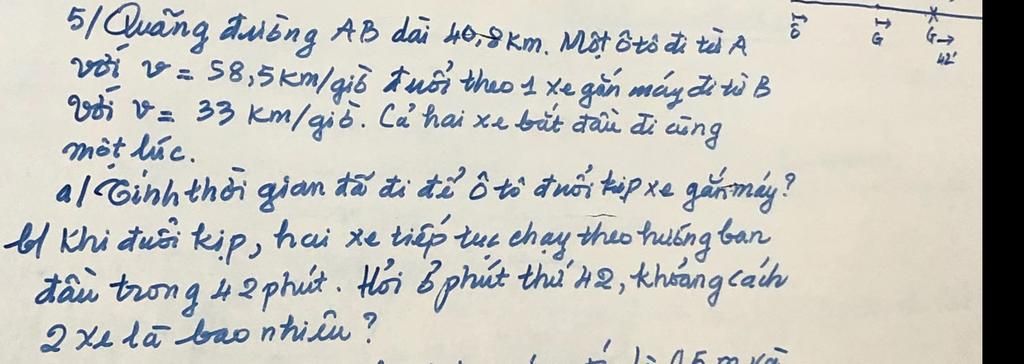 Ô G G→
42'
5/ Quãng đường AB dài 40,8 km. Một ôtô đi từ A
với v = 58,5 km/giờ đuổi theo 1 xe gắn máy đi từ B
với v = 33 km/giờ. Cả hai xe bắt đầu đi cùng
một lúc.
a/ Tính thời gian đã đi để ô tô đuổi kịp xe gắn máy?
b/ Khi đuổi kịp, hai xe tiếp tục chạy theo hướng ban
đầu trong 42 phút. Hỏi ở phút thứ 42, khoảng cách
2 xe là bao nhiêu?